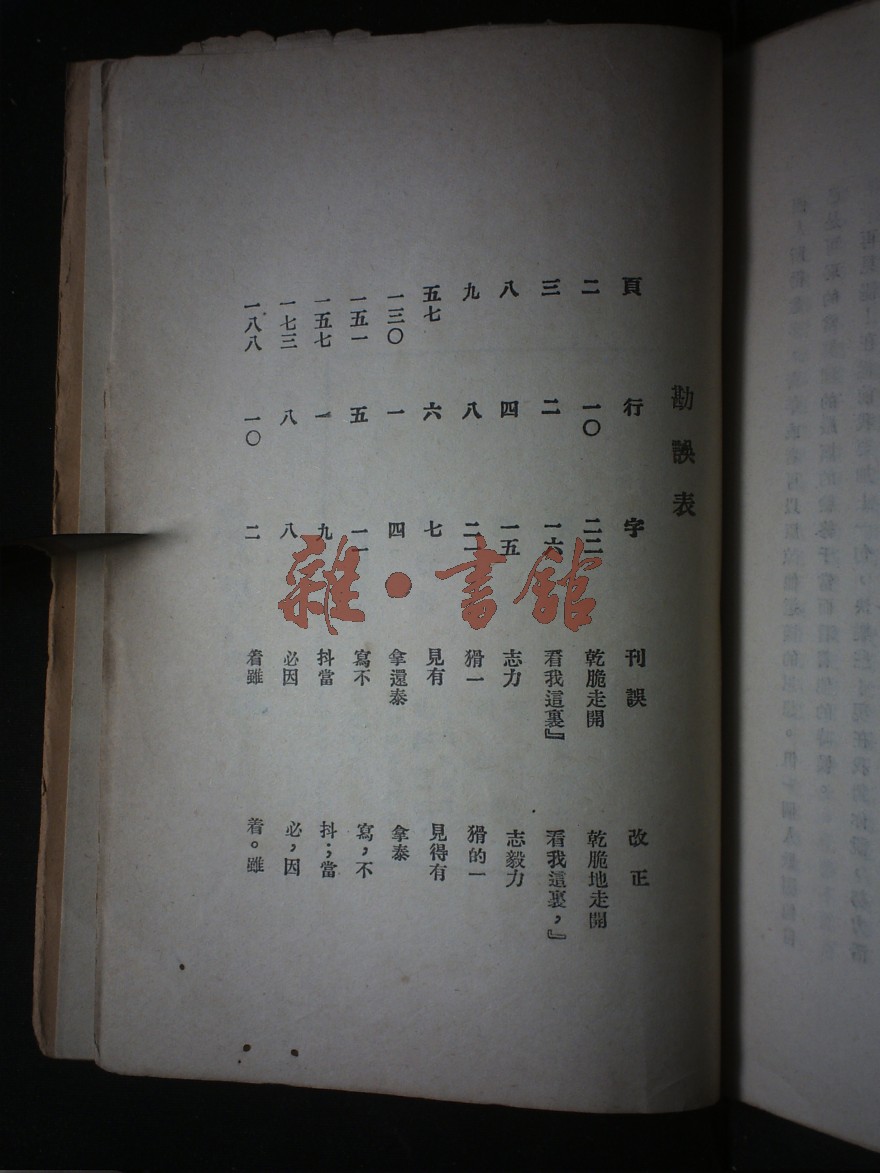 勘誤表
頁 行 字 刊誤 改正
二 一〇 二二 乾脆走開 乾脆地走開
三 二 一六 看我這裏』 看我這裏，』
八 四 一五 志力 志毅力
九 八 二一 猾一 猾的一
五七 六 七 見有 見得有
一三〇 一 四 拿還泰 拿泰
一五一 五 一一 寫不 寫，不
一五七 一 九 抖當 抖；當
一七三 八 八 必因 必，因
一八八 一〇 二 着雖 着。雖
雜·書館